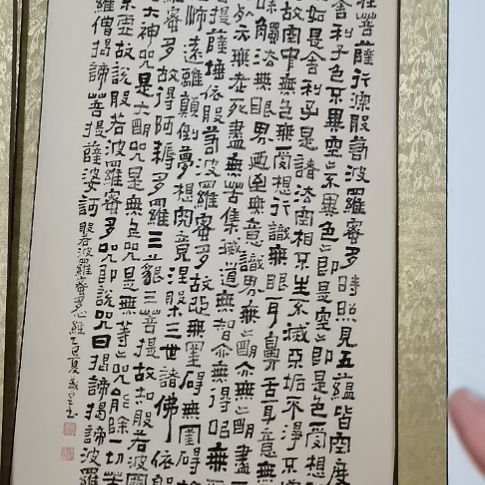 在菩薩行深般若波羅蜜多時照見五蘊皆空度
舍利子色不異空〻不異色〻即是空〻即是色受想
如是舍利子是諸法空相不生不滅不垢不淨不增
故空中無色無受想行識無眼耳鼻舌身意無
味觸法無眼界乃至無意識界無〻明亦無〻明盡
亦無老死盡無苦集滅道無智亦無得以無
提薩埵依般若波羅蜜多故心無罣礙無罣礙故
怖遠離顛倒夢想究竟涅槃三世諸佛依般
羅蜜多故得阿耨多羅三藐三菩提故知般若波羅
大神咒是大明咒是無上咒是無等〻咒能除一切苦
不虛故說般若波羅蜜多咒即說咒曰揭諦揭諦波羅
羅僧揭諦菩提薩婆訶 般若波羅蜜多心經